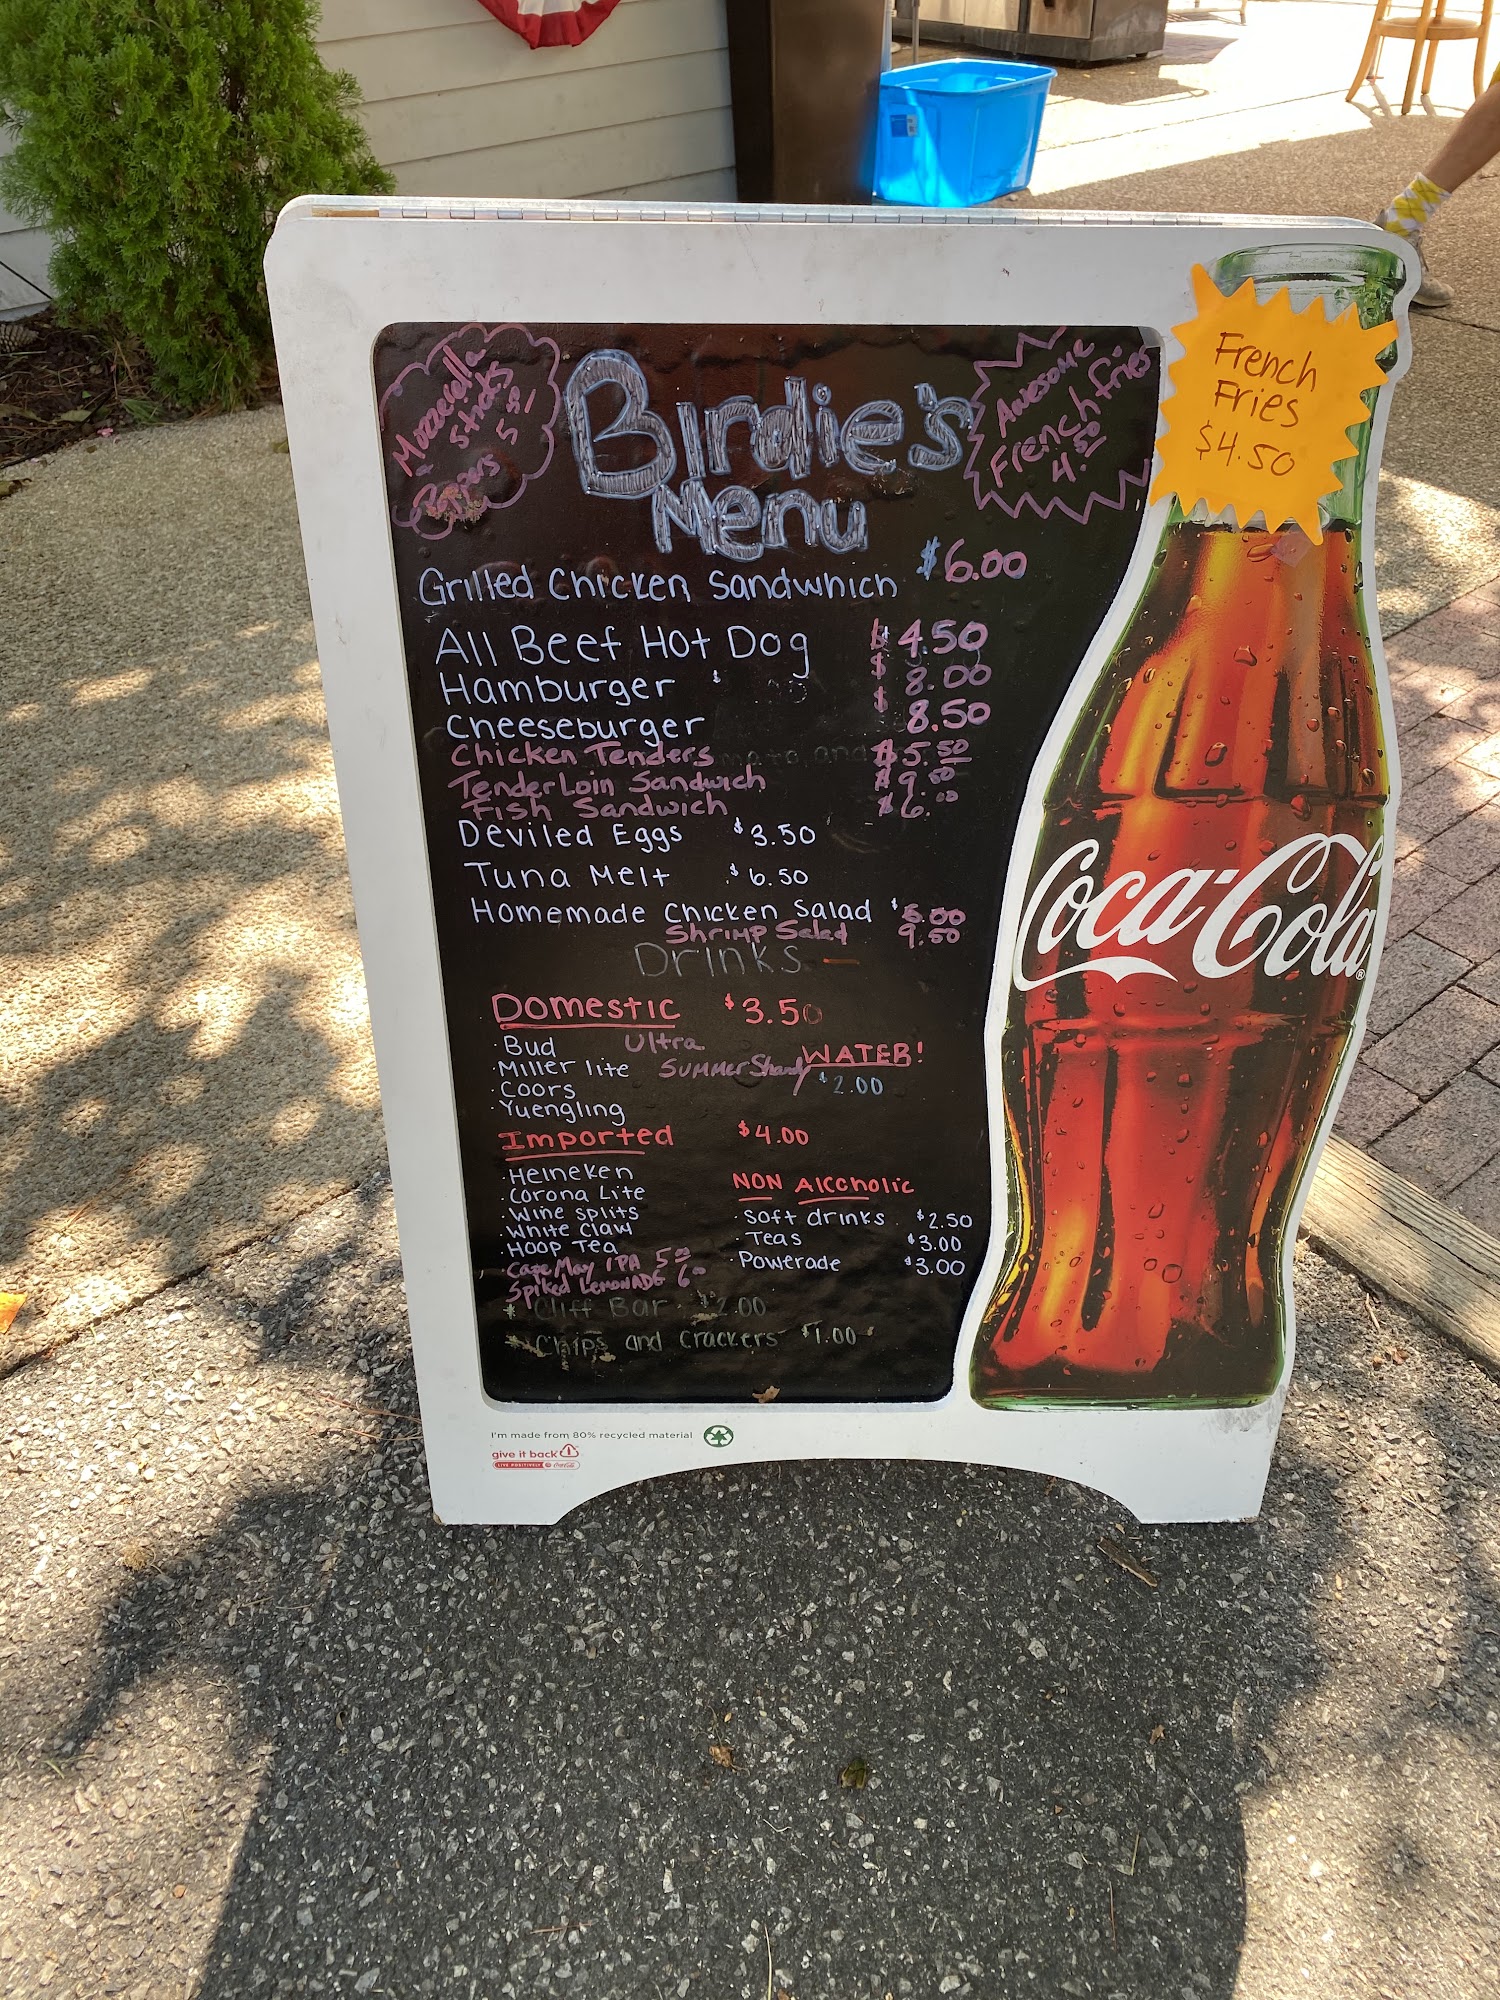 Mozzerella
Sticks
5
Birdie's
Menu
Awesome
French fries
4.50
French
Fries
$4.50
Grilled Chicken Sandwhich $6.00
All Beef Hot Dog $4.50
Hamburger $8.00
Cheeseburger $8.50
Chicken Tenders $5.50
TenderLoin Sandwich $9.50
Fish Sandwich $6.00
Deviled Eggs $3.50
Tuna Melt $6.50
Homemade Chicken Salad $6.00
Shrimp Salad 9.50
Drinks
Domestic $3.50
· Bud Ultra
· Miller lite Summer Shandy
· Coors
· Yuengling
WATER!
$2.00
Imported $4.00
· Heineken
· Corona Lite
· Wine splits
· White Claw
· Hoop Tea
· Cape May IPA 5.00
Spiked LemonADE 6.00
NON Alcoholic
· Soft drinks $2.50
· Teas $3.00
· Powerade $3.00
* Cliff Bar $2.00
* Chips and Crackers $1.00
Coca-Cola®
I'm made from 80% recycled material
give it back
LIVE POSITIVELY Coca-Cola